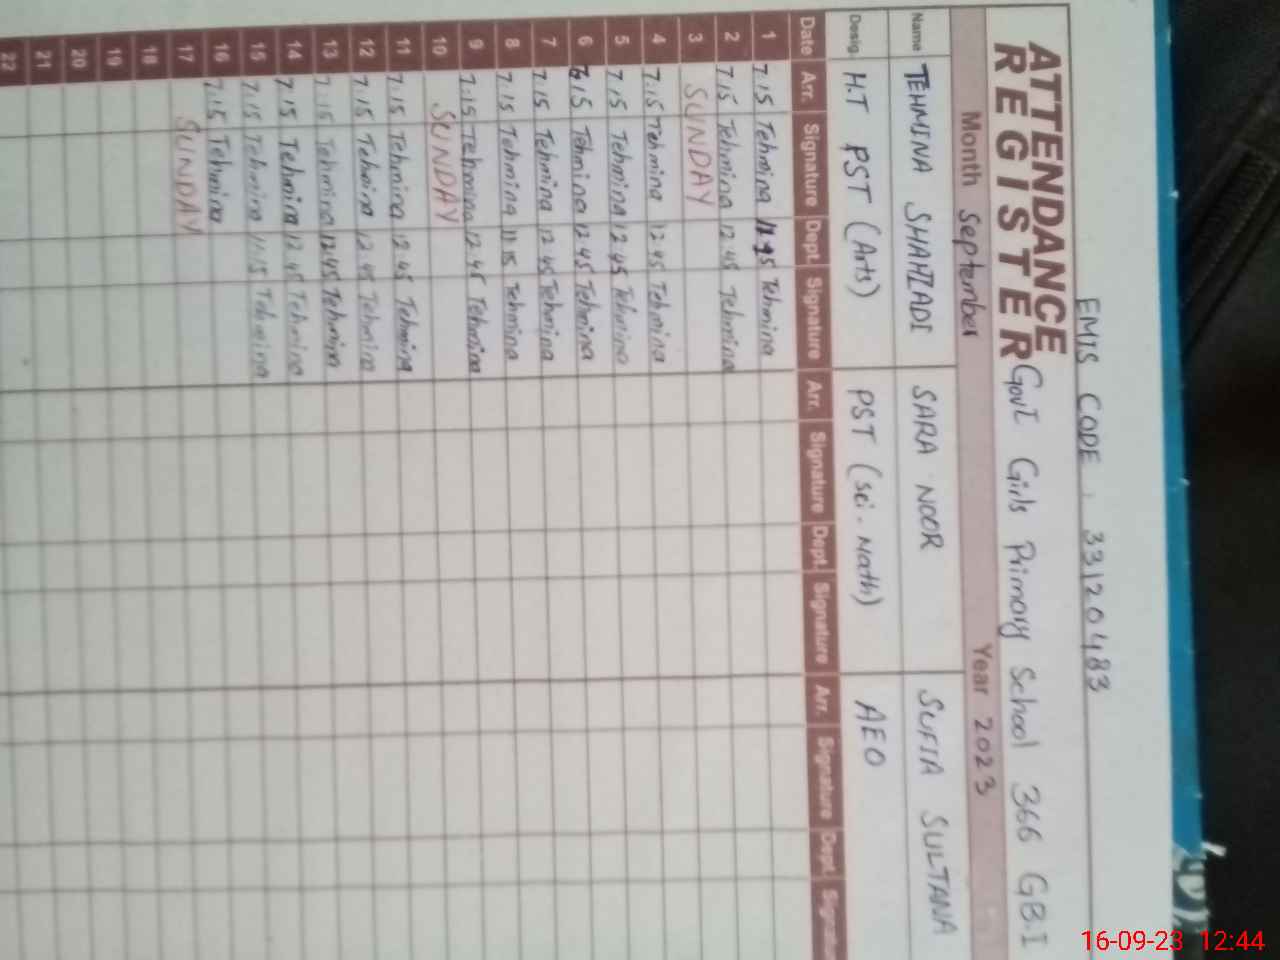 EMIS CODE . 33120483
ATTENDANCE REGISTER
Govt Girls Primary School 366 GB.I
Month September Year 2023
Name TEHMINA SHAHZADI SARA NOOR SUFIA SULTANA
Desig H.T PST (Arts) PST (sci. Math) AEO
Date Arr. Signature Dept. Signature Arr. Signature Dept. Signature Arr. Signature Dept. Signatur
1 7.15 Tehmina Tehmina
2 7.15 Tehmina 12.45 Tehmina
3 SUNDAY
4 7.15 Tehmina 12.45 Tehmina
5 7.15 Tehmina 12.45 Tehmina
6 7.15 Tehmina 12.45 Tehmina
7 7.15 Tehmina 12.45 Tehmina
8 7.15 Tehmina 11.15 Tehmina
9 7.15 Tehmina 12.45 Tehmina
10 SUNDAY
11 7.15 Tehmina 12.45 Tehmina
12 7.15 Tehmina 12.45 Tehmina
13 7.15 Tehmina 12.45 Tehmina
14 7.15 Tehmina 12.45 Tehmina
15 7.15 Tehmina 11.15 Tehmina
16 7.15 Tehmina
17 SUNDAY
18
19
20
21
22
16-09-23 12:44